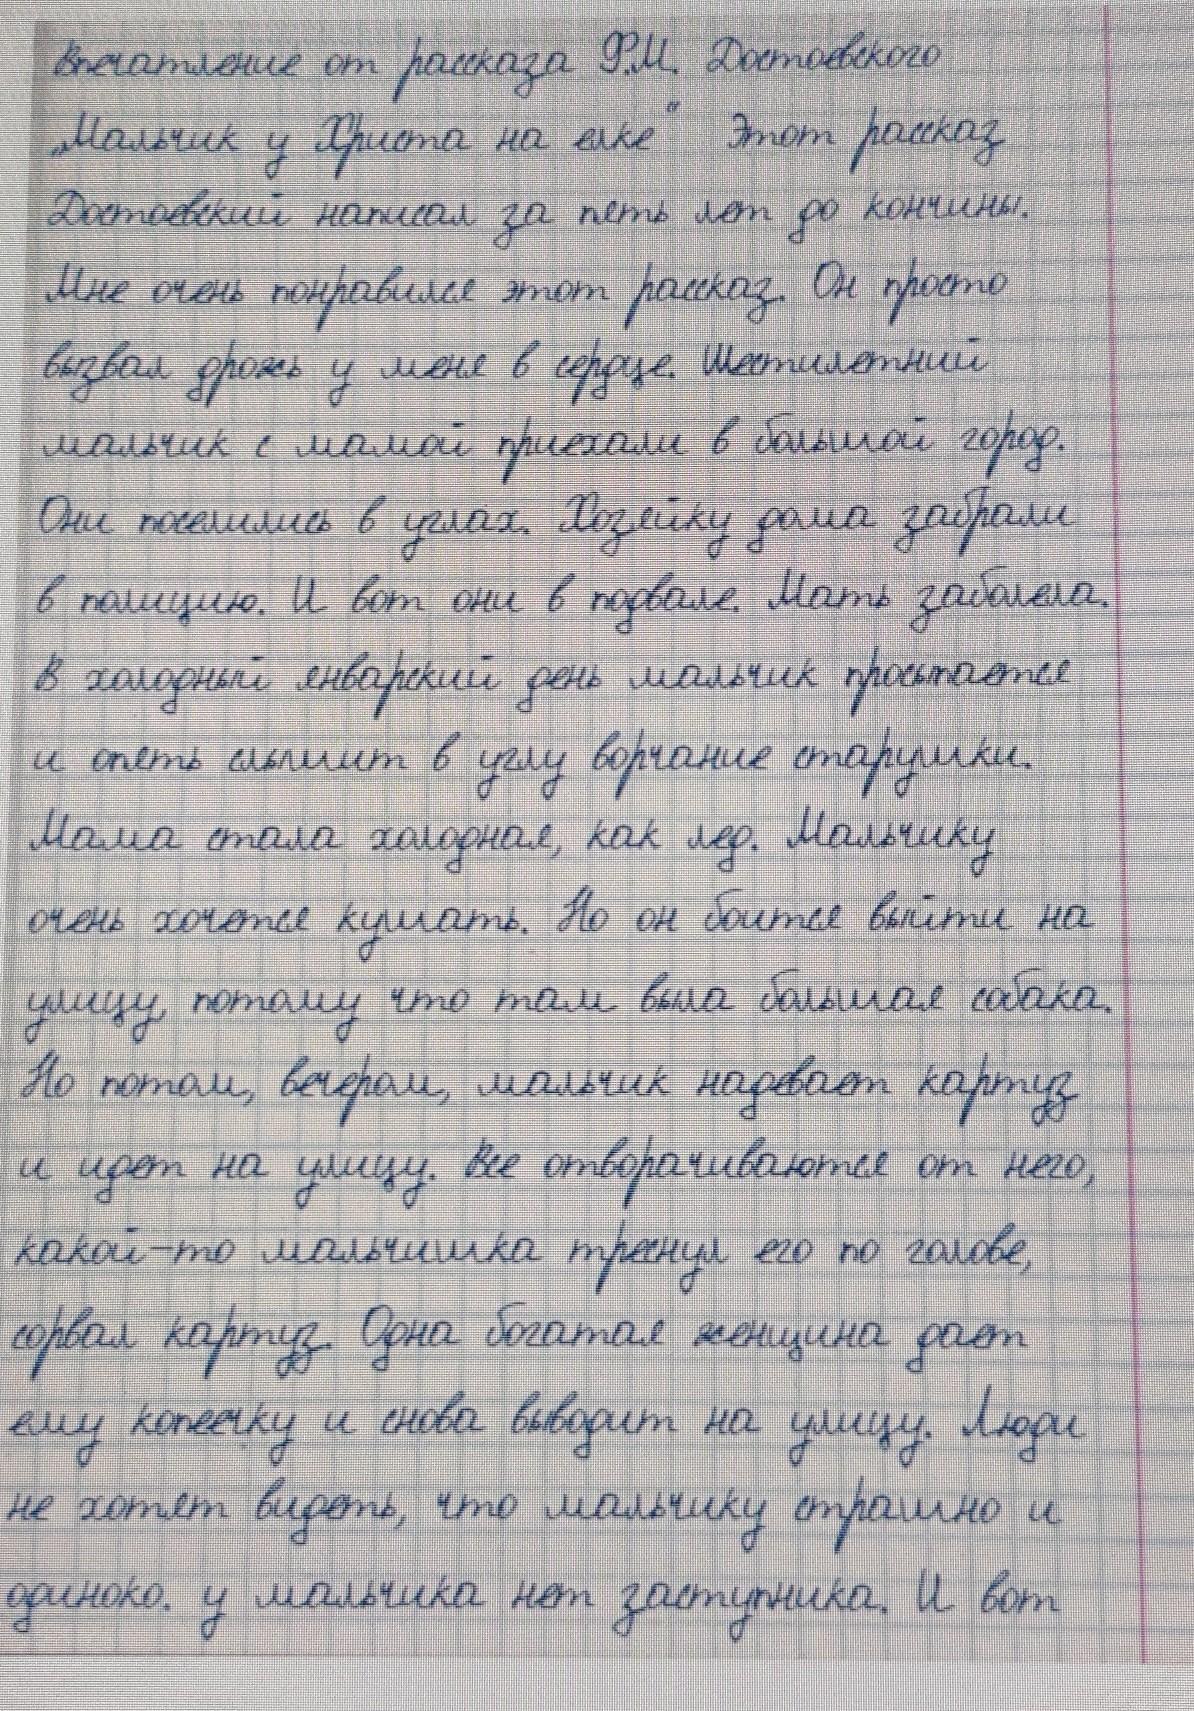 Впечатление от рассказа Ф.М. Достоевского
„Мальчик у Христа на елке“ Этот рассказ
Достоевский написал за пять лет до кончины.
Мне очень понравился этот рассказ. Он просто
вызвал дрожь у меня в сердце. Шестилетний
мальчик с мамой приехали в большой город.
Они поселились в углах. Хозяйку дома забрали
в полицию. И вот они в подвале. Мать заболела.
В холодный январский день мальчик просыпается
и опять слышит в углу ворчание старушки.
Мама стала холодная, как лед. Мальчику
очень хочется кушать. Но он боится выйти на
улицу, потому что там была большая собака.
Но потом, вечером, мальчик надевает картуз
и идет на улицу. Все отворачиваются от него,
какой-то мальчишка треснул его по голове,
сорвал картуз. Одна богатая женщина дает
ему копеечку и снова выводит на улицу. Люди
не хотят видеть, что мальчику страшно и
одиноко. у мальчика нет заступника. И вот